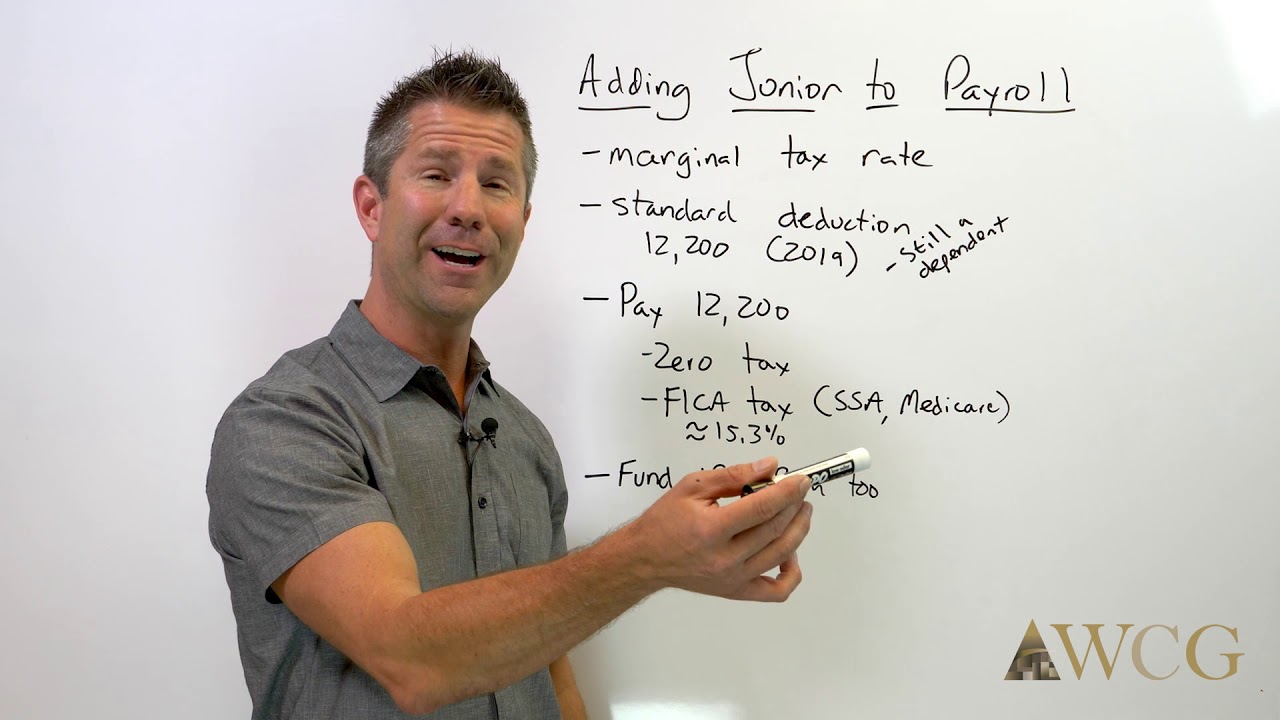 Adding Junior to Payroll
- marginal tax rate
- standard deduction
12,200 (2019)
- still a
dependent
- Pay 12,200
- Zero tax
- FICA tax (SSA, Medicare)
≈ 15.3%
- Fund too
AWCG